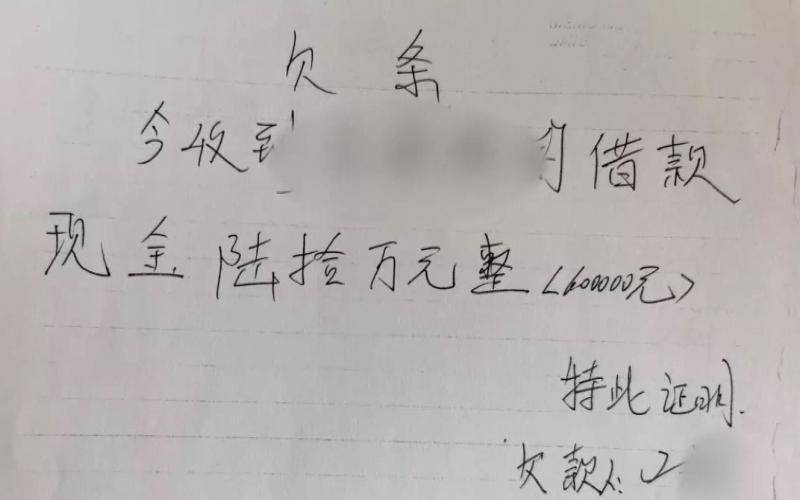 欠条
今收到的借款
现金陆拾万元整(600000元)
特此证明.
欠款人: